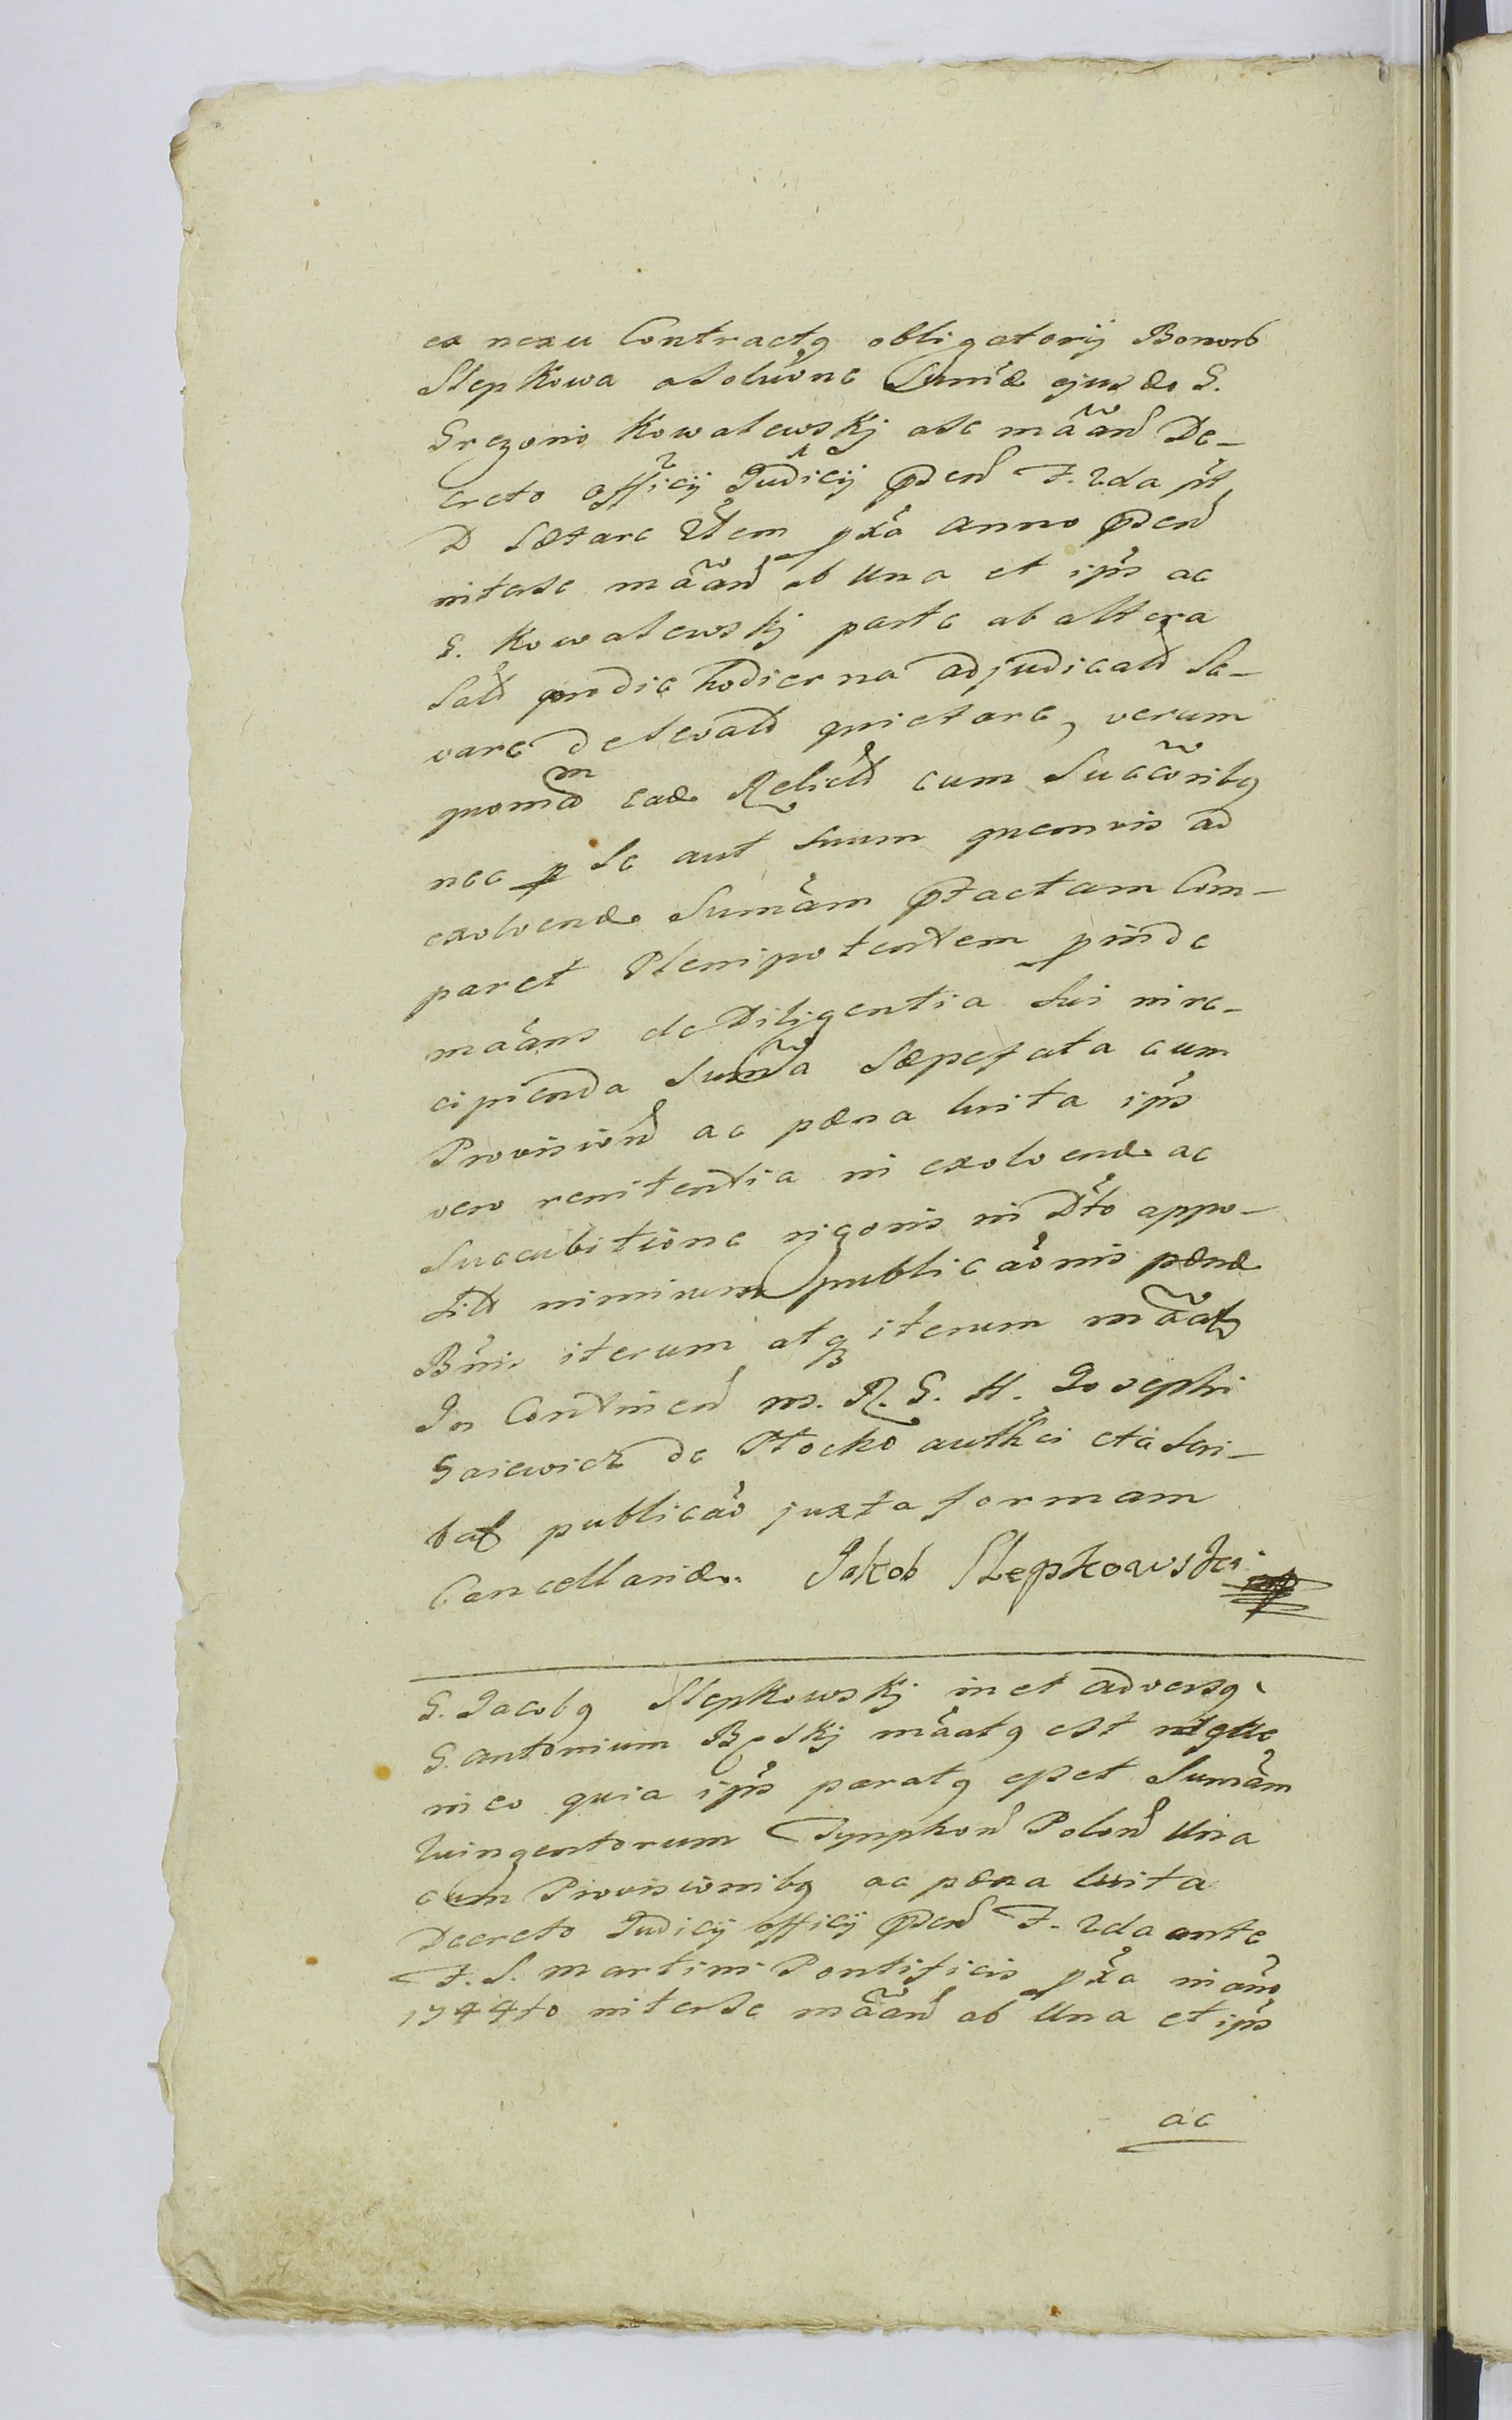 ex nexu Contractq obligatorij Bonorb
Slepkowa absoluõne Sum̃æ ejusdẽ G.
Gregorio Kowalewskj a se mãan De-
creto officij Judicij p̃den F. 2da p̃t
D Lætare R̃lem p̃xa anno p̃den
interse mãan ab una et ip̃s ac
G. Kowalewskj parte ab altera
Lat pro die hodierna adjudicat Le-
vare de levat quietare, verum
quoniam eadẽ Relict cum Succõribq
nec p se aut suum quemvis ad
exolvendẽ Sum̃am p̃tactam Com-
paret Plenipotentem p̃inde
mãans de Diligentia sui in re-
cipienda Sum̃a Sæpefata cum
Provision ac pæna luita ip̃s
vero renitentia in exolvendẽ ac
Succubitione rigoris in D̃to appo-
sit nimirum publicaõnis pænæ
Bñis iterum atq iterum mãatq
In Continen m. R. G. H. Josephi
Gaiewicz de Płocko auth̃ci cta scri-
bal publicaõ juxta formam
Cancellariæ. Jakob Slepkowski mp
G. Jacobq Slepkowskj in et adversq
G. antonium Bęskj mãatq est
in eo quia ip̃s paratq esset Sum̃am
Quingentorum Tynphon Polon Una
cum Provisionibq ac pæna luita
Decreto Judicij officij p̃den F. 2da ante
F. S. Martini Pontificis p̃xa in añno
1744to interse mãan ab Una et ip̃s
ac